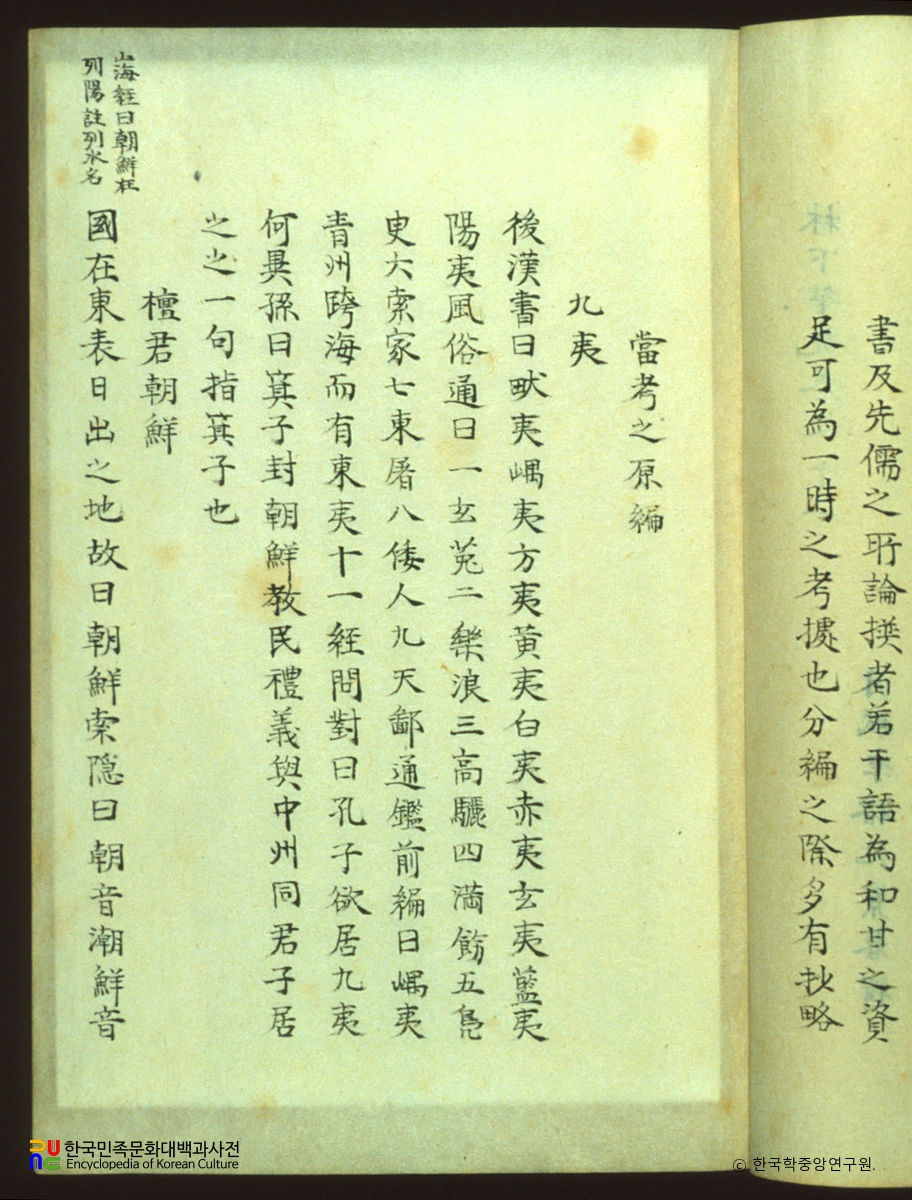 書及先儒之所論撰者若干語為和甘之資
足可為一時之考據也分編之際多有抄略
當考之原編
九夷
後漢書曰畎夷嵎夷方夷黃夷白夷赤夷玄夷藍夷
陽夷風俗通曰一玄菟二樂浪三高驪四滿飾五鳧
叟六索家七東屠八倭人九天鄙通鑑前編曰嵎夷
青州跨海而有東夷十一經問對曰孔子欲居九夷
何異孫曰箕子封朝鮮教民禮義與中州同君子居
之之一句指箕子也
檀君朝鮮
國在東表日出之地故曰朝鮮索隱曰朝音潮鮮音
山海經曰朝鮮在
列陽註列水名
한국민족문화대백과사전
Encyclopedia of Korean Culture
© 한국학중앙연구원.